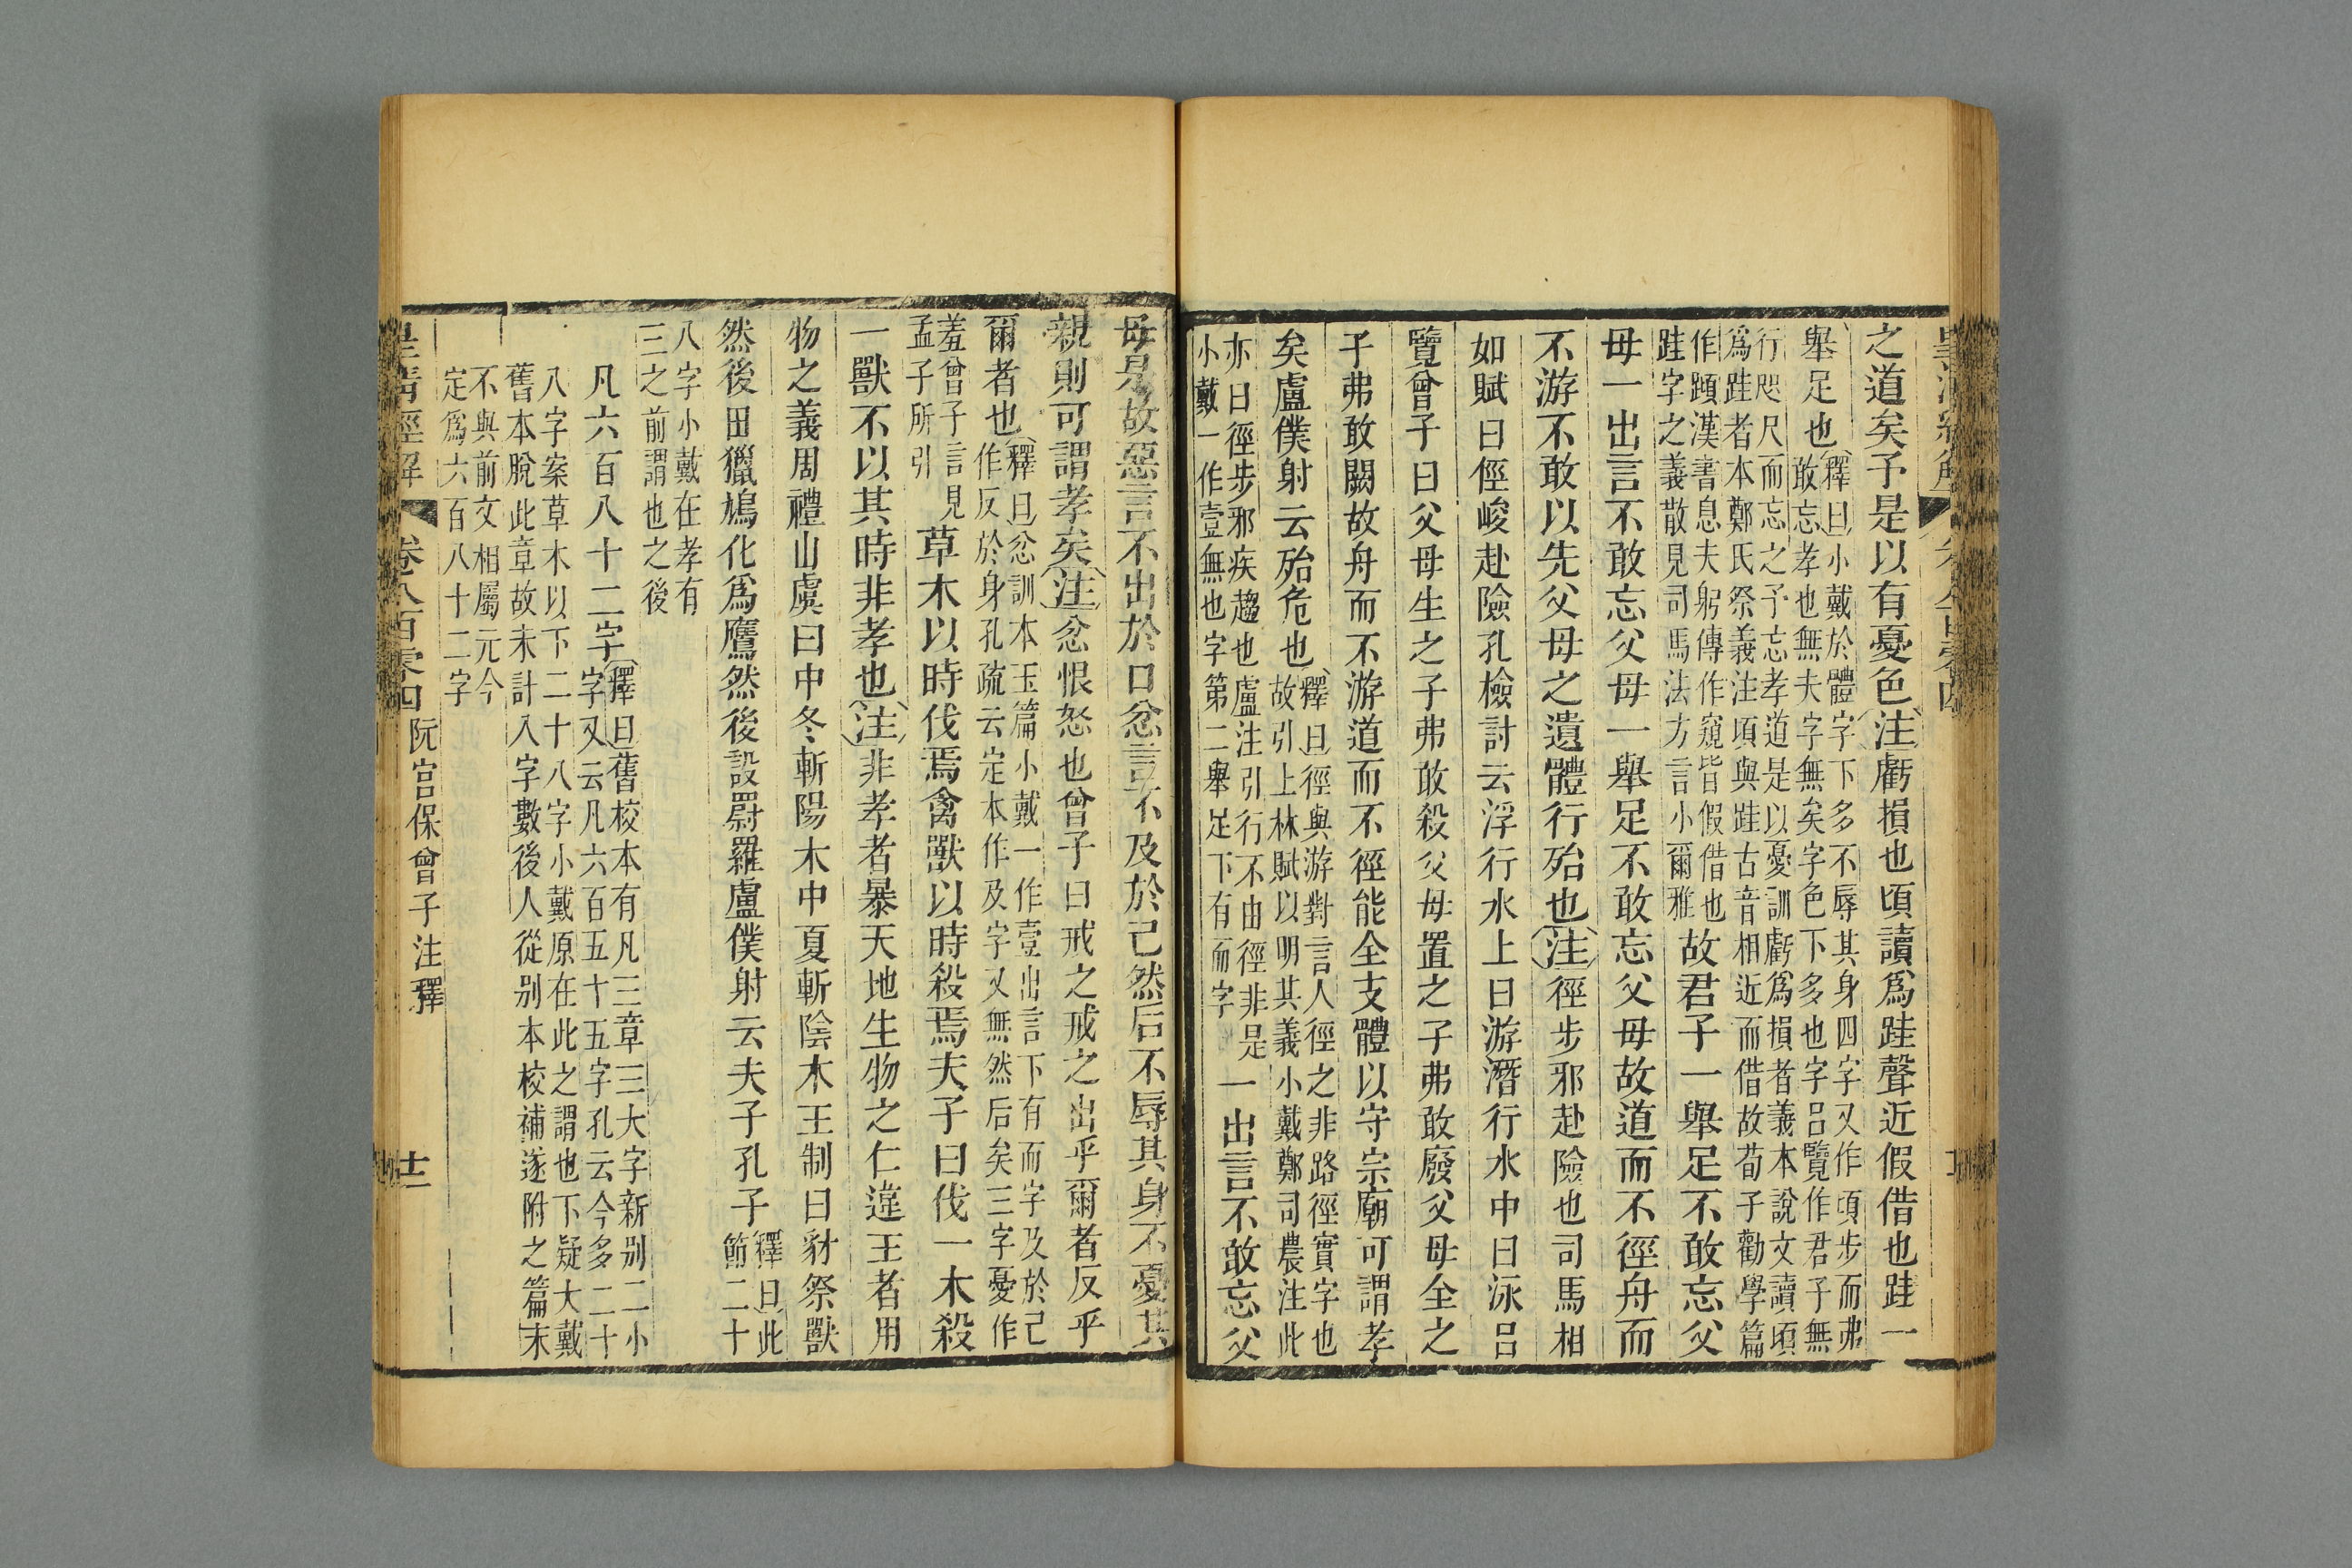 之道矣予是以有憂色注虧損也頃讀爲跬聲近假借也跬一
舉足也釋曰小戴於體字下多不辱其身四字又作頃步而弗
敢忘孝也無夫字無矣字色下多也字呂覽作君子無
行咫尺而忘之予忘孝道是以憂訓虧爲損者義本說文讀頃
爲跬者本鄭氏祭義注頃與跬古音相近而借故荀子勸學篇
作蹞漢書息夫躬傳作窺皆假借也
跬字之義散見司馬法方言小爾雅
故君子一舉足不敢忘父
母一出言不敢忘父母一舉足不敢忘父母故道而不徑舟而
不游不敢以先父母之遺體行殆也注徑步邪赴險也司馬相
如賦曰徑峻赴險孔檢討云浮行水上曰游潛行水中曰泳呂
覽曾子曰父母生之子弗敢殺父母置之子弗敢廢父母全之
子弗敢闕故舟而不游道而不徑能全支體以守宗廟可謂孝
矣盧僕射云殆危也釋曰徑與游對言人徑之非路徑實字也
故引上林賦以明其義小戴鄭司農注此
亦曰徑步邪疾趨也盧注引行不由徑非是
小戴一作壹無也字第二舉足下有而字
一出言不敢忘父
母是故惡言不出於口忿言不及於己然后不辱其身不憂其
親則可謂孝矣注忿恨怒也曾子曰戒之戒之出乎爾者反乎
爾者也釋曰忿訓本玉篇小戴一作壹出言下有而字及於己
作反於身孔疏云定本作及字又無然后矣三字憂作
羞曾子言見
孟子所引
草木以時伐焉禽獸以時殺焉夫子曰伐一木殺
一獸不以其時非孝也注非孝者暴天地生物之仁違王者用
物之義周禮山虞曰中冬斬陽木中夏斬陰木王制曰豺祭獸
然後田獵鳩化爲鷹然後設罻羅盧僕射云夫子孔子釋曰此
節二十
八字小戴在孝有
三之前謂也之後
凡六百八十二字釋曰舊校本有凡三章三大字新别二小
字又云凡六百五十五字孔云今多二十
八字案草木以下二十八字小戴原在此之謂也下疑大戴
舊本脫此章故未計入字數後人從别本校補遂附之篇末
不與前文相屬元今
定爲六百八十二字
皇清經解
卷八百零四
阮宮保曾子注釋
十二